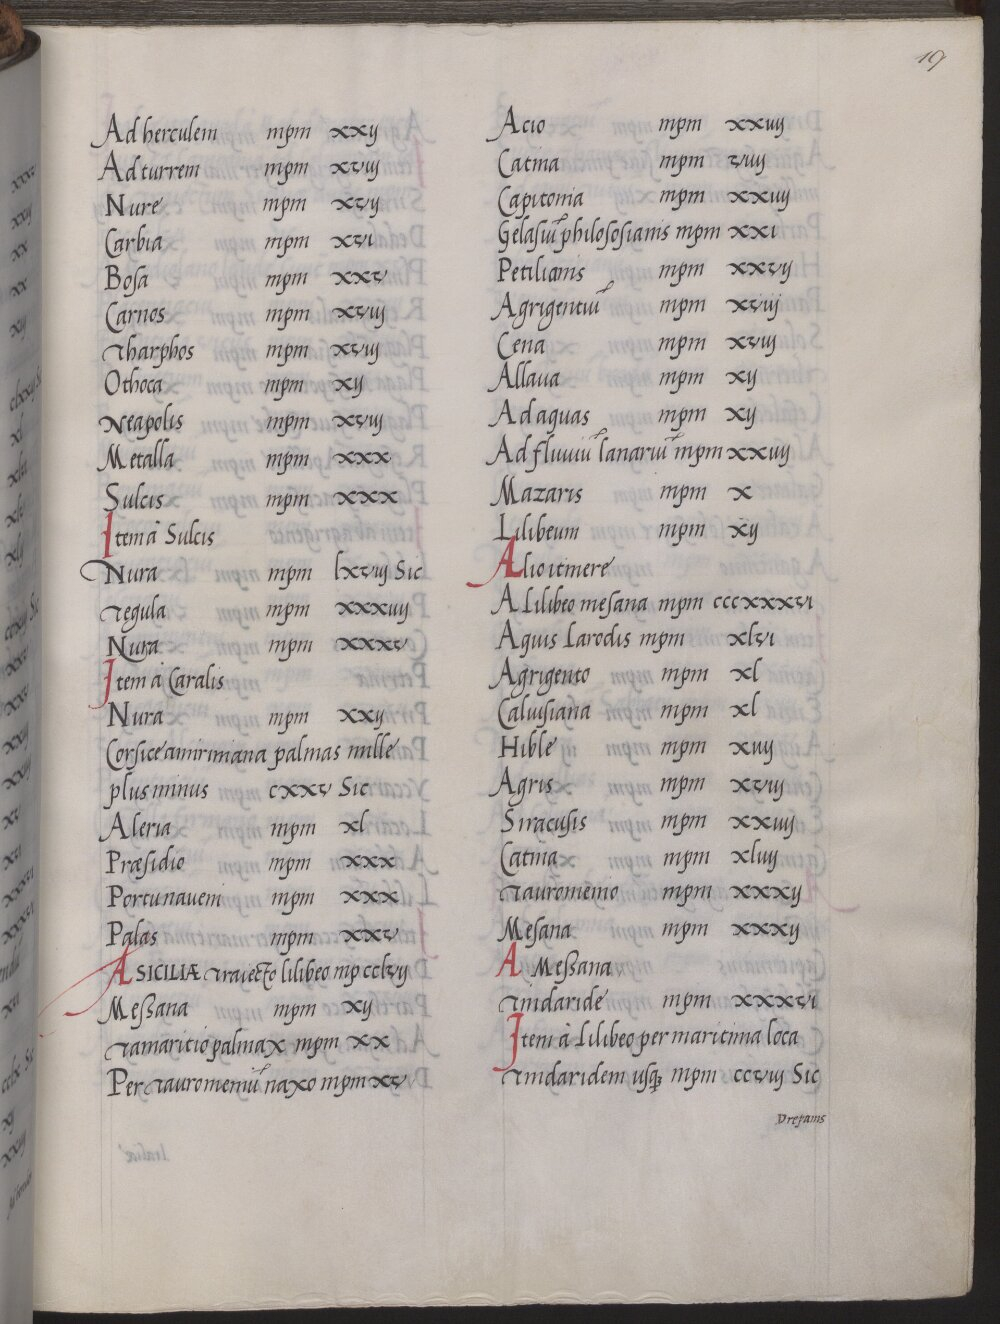 19
Ad herculem mpm xxij
Ad turrem mpm xviij
Nure mpm xvij
Carbia mpm xvi
Bosa mpm xxv
Carnos mpm xviij
Tharphos mpm xviij
Othoca mpm xij
Neapolis mpm xviij
Metalla mpm xxx
Sulcis mpm xxx
Item à Sulcis
Nura mpm lxviij Sic
Tegula mpm xxxiiij
Nura mpm xxxv
Item à Caralis
Nura mpm xxij
Corsice amirimana palmas mille
plus minus cxxv Sic
Aleria mpm xl
Præsidio mpm xxx
Portunaueni mpm xxx
Palas mpm xxv
A SICILIÆ Traiecto lilibeo mp cclvij
Meßana mpm xij
Tamaritio palmax mpm xx
Per Tauromeniū naxo mpm xv
Acio mpm xxiiij
Catina mpm viiij
Capitonia mpm xxiiij
Gelasiū philosofianis mpm xxi
Petilianis mpm xxvij
Agrigentiū mpm xviij
Cena mpm xviij
Allaua mpm xij
Ad aquas mpm xij
Ad fluuiū lanariū mpm xxiiij
Mazaris mpm x
Lilibeum mpm xij
Alio itinere
A Lilibeo mesana mpm cccxxxvi
Aquis Larodis mpm xlvi
Agrigento mpm xl
Caluisiana mpm xl
Hible mpm xiiij
Agris mpm xviij
Siracusis mpm xxiiij
Catina mpm xliiij
Tauromenio mpm xxxij
Mesana mpm xxxij
A Meßana
Tindaride mpm xxxvi
Item à Lilibeo per maritima loca
Tindaridem usq; mpm ccviij Sic
Drepanis